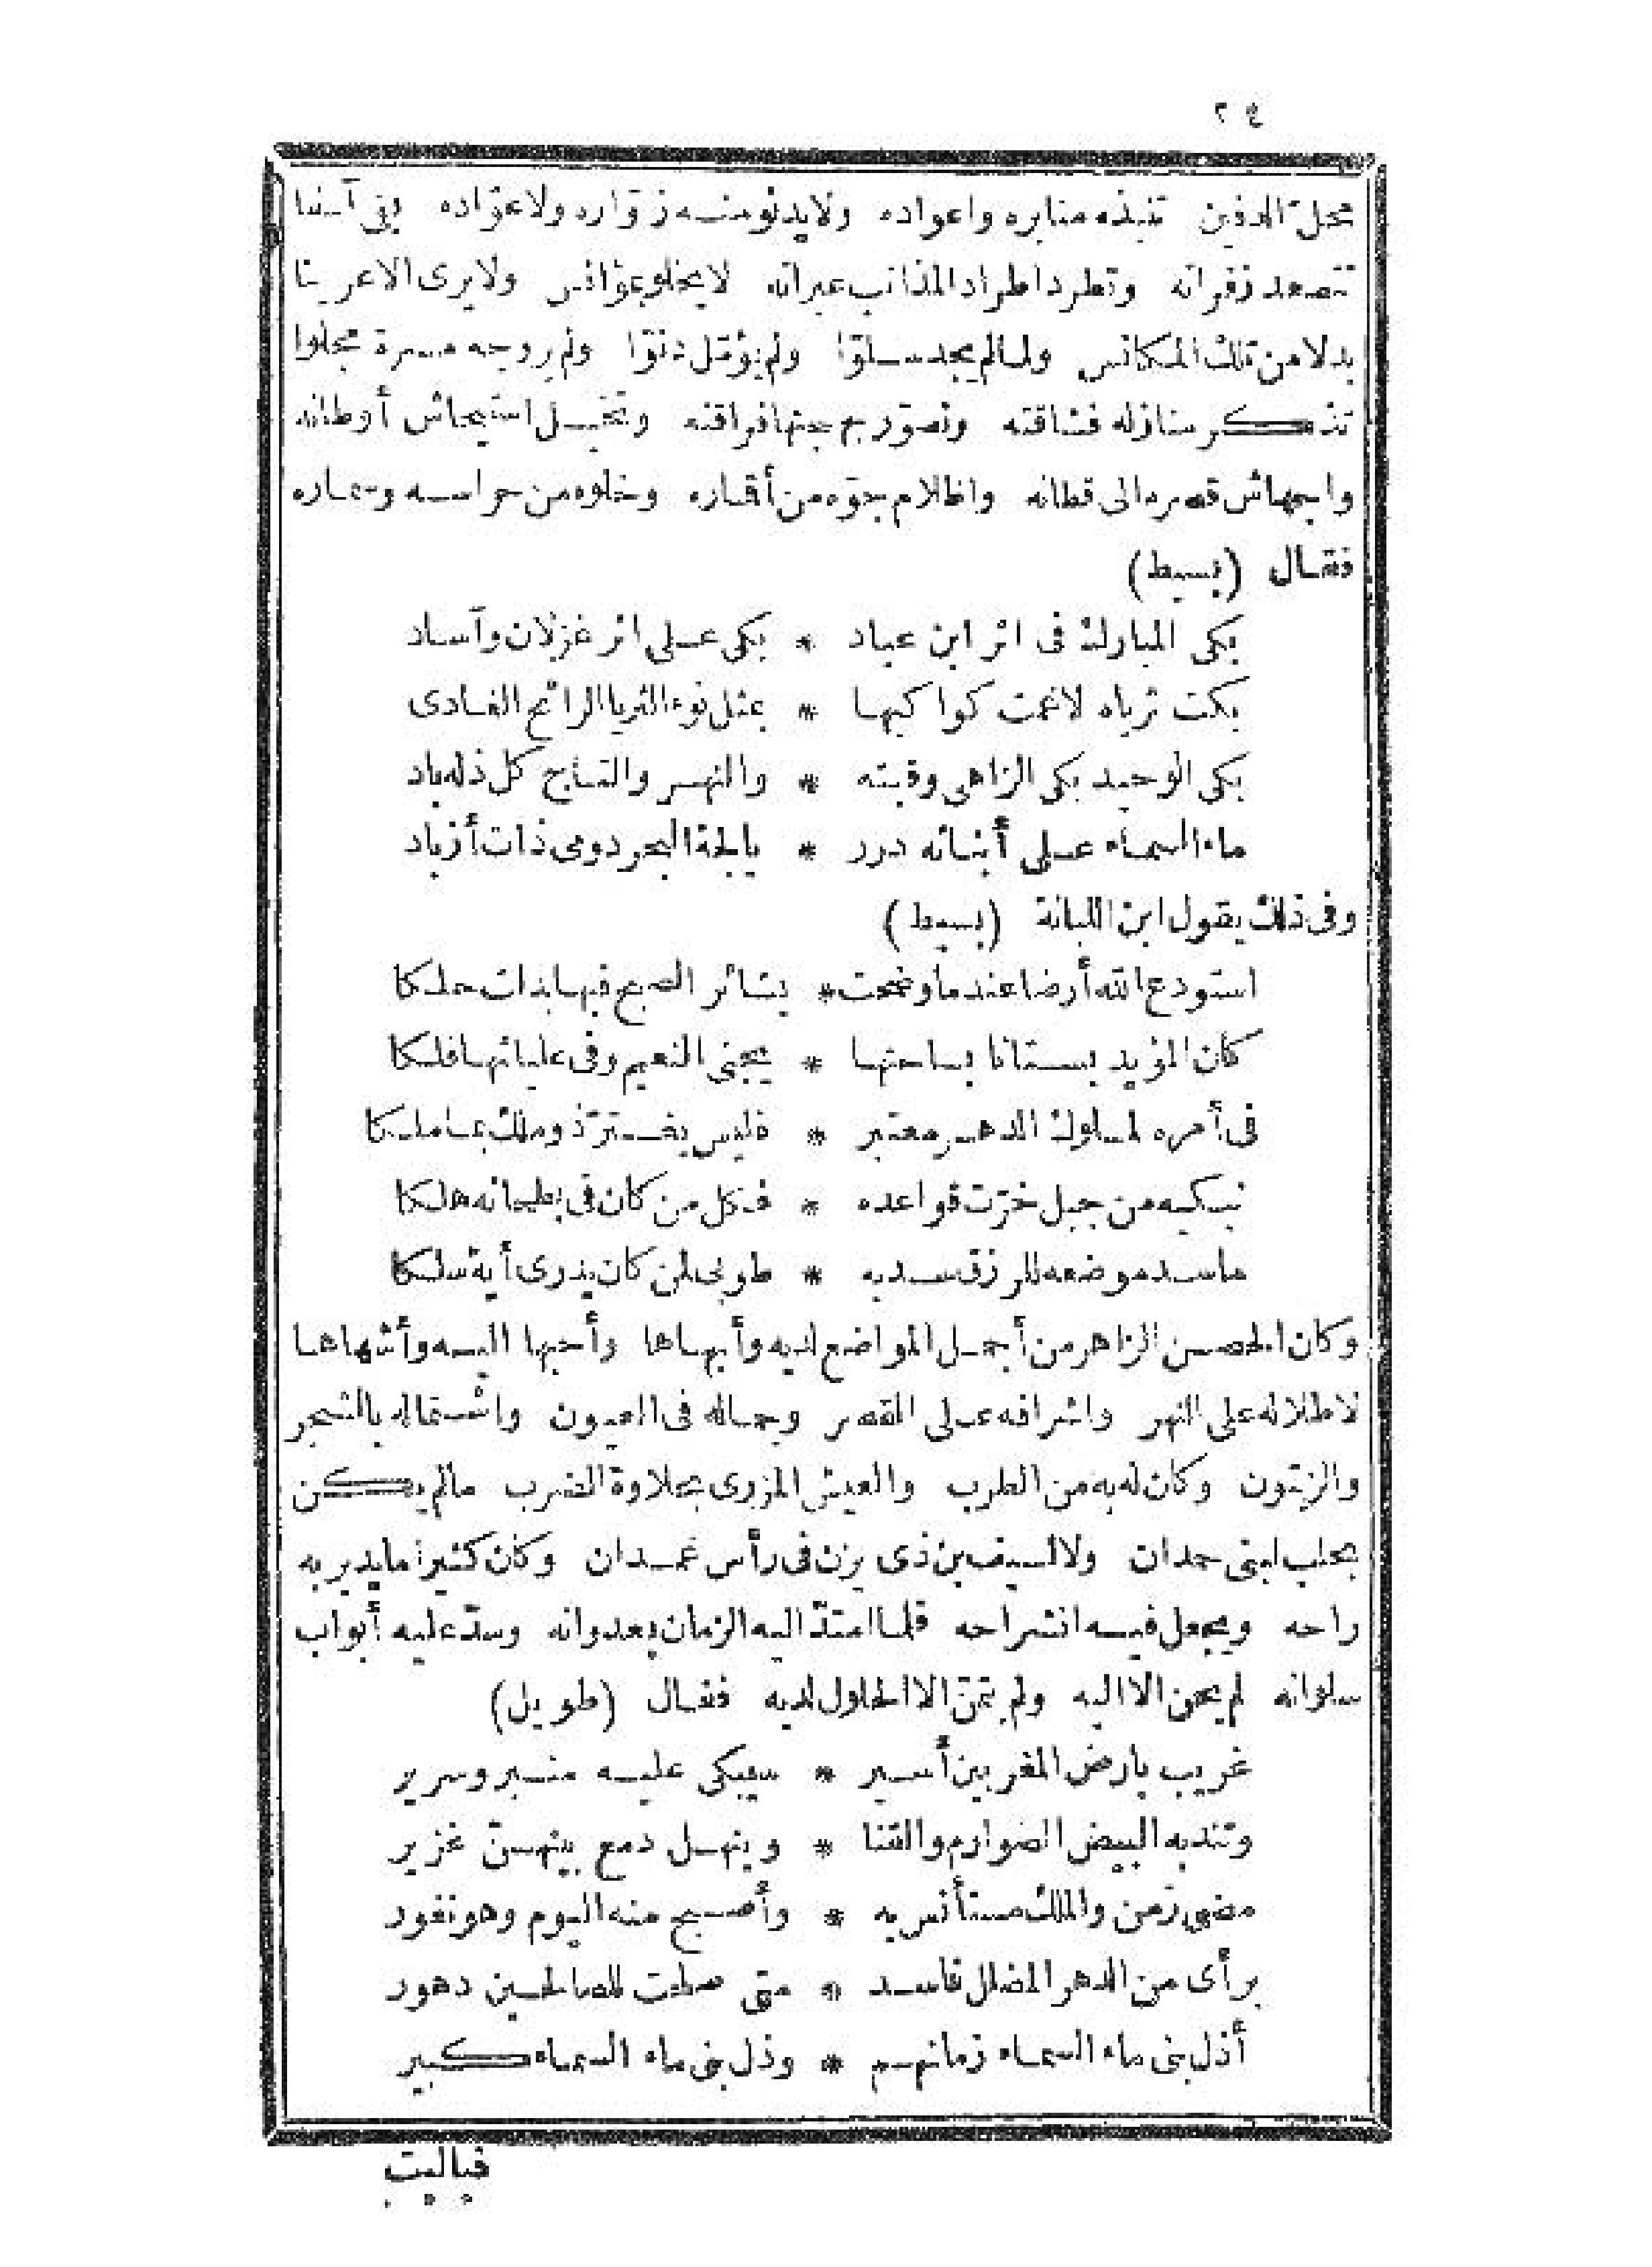 ٢٤
محل الدفين تندبه منابره واعواده ولا يدنو منه زواره ولا عواده بقى آسفا
تتصعد زفراته وتطرد اطراد المذانب عبراته لا يخلو بمؤانس ولا يرى الا عرينا
بدلا من تلك المكانس ولما لم يجد سلوّا ولم يؤمّل دنوّا ولم ير وجه مسرة مجلوا
تذكر منازله فشاقته وتصوّر بهجتها فراقته وتخيل استيحاش أوطانه
واجهاش قصره الى قطانه واظلام جوّه من أقماره وخلوه من حراسه وسماره
فقال (بسيط)
بكى المبارك فى اثر ابن عباد * بكى على اثر غزلان وآساد
بكت ثرياه لا غمت كواكبها * بمثل نوء الثريا الرائح الغادى
بكى الوحيد بكى الزاهى وقبته * والنهر والتاج كل ذله باد
ماء السماء على أبنائه درر * يا لجة البحر دومى ذات أزباد
وفى ذلك يقول ابن اللبانة (بسيط)
استودع الله أرضا عندما وضحت * بشائر الصبح فيها بدلت حلكا
كان المؤيد بستانا بساحتها * يجنى النعيم وفى عليائها فلكا
فى أمره لملوك الدهر معتبر * فليس يغترّ ذو ملك بما ملكا
نبكيه من جبل خرّت قواعده * فكل من كان فى بطحائه هلكا
ما سد موضعه للرزق سد به * طوبى لمن كان يدرى أية سلكا
وكان الحصن الزاهر من أجمل المواضع لديه وأبهاها وأحبها اليه وأشهاها
لاطلاله على النهر واشرافه على القصر وجماله فى العيون واشتماله بالشجر
والزيتون وكان له به من الطرب والعيش المزرى بحلاوة الضرب ما لم يكن
بحلب لبنى حمدان ولا لسيف بن ذى يزن فى رأس غمدان وكان كثيرا ما يدير به
راحه ويجعل فيه انشراحه فلما امتدّ اليه الزمان بعدوانه وسدّ عليه أبواب
سلوانه لم يحن الا اليه ولم يتمنّ الا الحلول لديه فقال (طويل)
غريب بارض المغربين أسير * سيبكى عليه منبر وسرير
وتندبه البيض الصوارم والقنا * وينهل دمع بينهنّ غزير
مضى زمن والملك مستأنس به * وأصبح منه اليوم وهو نفور
برأى من الدهر المضلل فاسد * متى صلحت للصالحين دهور
أذل بنى ماء السماء زمانهم * وذل بنى ماء السماء كبير
فياليت